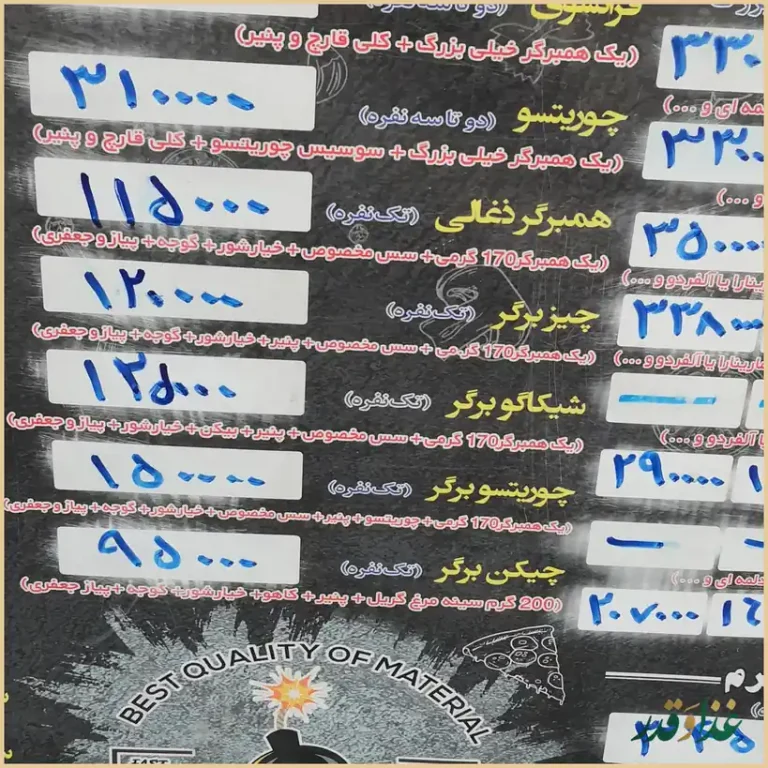 (یک همبرگر خیلی بزرگ + کلی قارچ و پنیر)
چوریتسو (دو تا سه نفره) ۳۱۰۰۰۰
(یک همبرگر خیلی بزرگ + سوسیس چوریتسو + کلی قارچ و پنیر)
همبرگر ذغالی (تک نفره) ۱۱۵۰۰۰
(یک همبرگر 170 گرمی + سس مخصوص + خیارشور + گوجه + پیاز و جعفری)
چیز برگر (تک نفره) ۱۲۰۰۰۰
(یک همبرگر 170 گرمی + سس مخصوص + پنیر + خیارشور + گوجه + پیاز و جعفری)
شیکاگو برگر (تک نفره) ۱۳۵۰۰۰
(یک همبرگر 170 گرمی + سس مخصوص + پنیر + بیکن + خیارشور + گوجه + پیاز و جعفری)
چوریتسو برگر (تک نفره) ۱۵۰۰۰۰
(یک همبرگر 170 گرمی + چوریتسو + پنیر + سس مخصوص + خیارشور + گوجه + پیاز و جعفری)
چیکن برگر (تک نفره) ۹۵۰۰۰
(200 گرم سینه مرغ گریل + پنیر + کاهو + خیارشور + گوجه + پیاز جعفری)
BEST QUALITY OF MATERIAL
۳۵۰۰۰۰
۳۳۸۰۰۰
۲۹۰۰۰۰
۲۰۷۰۰۰
غذا و قدر